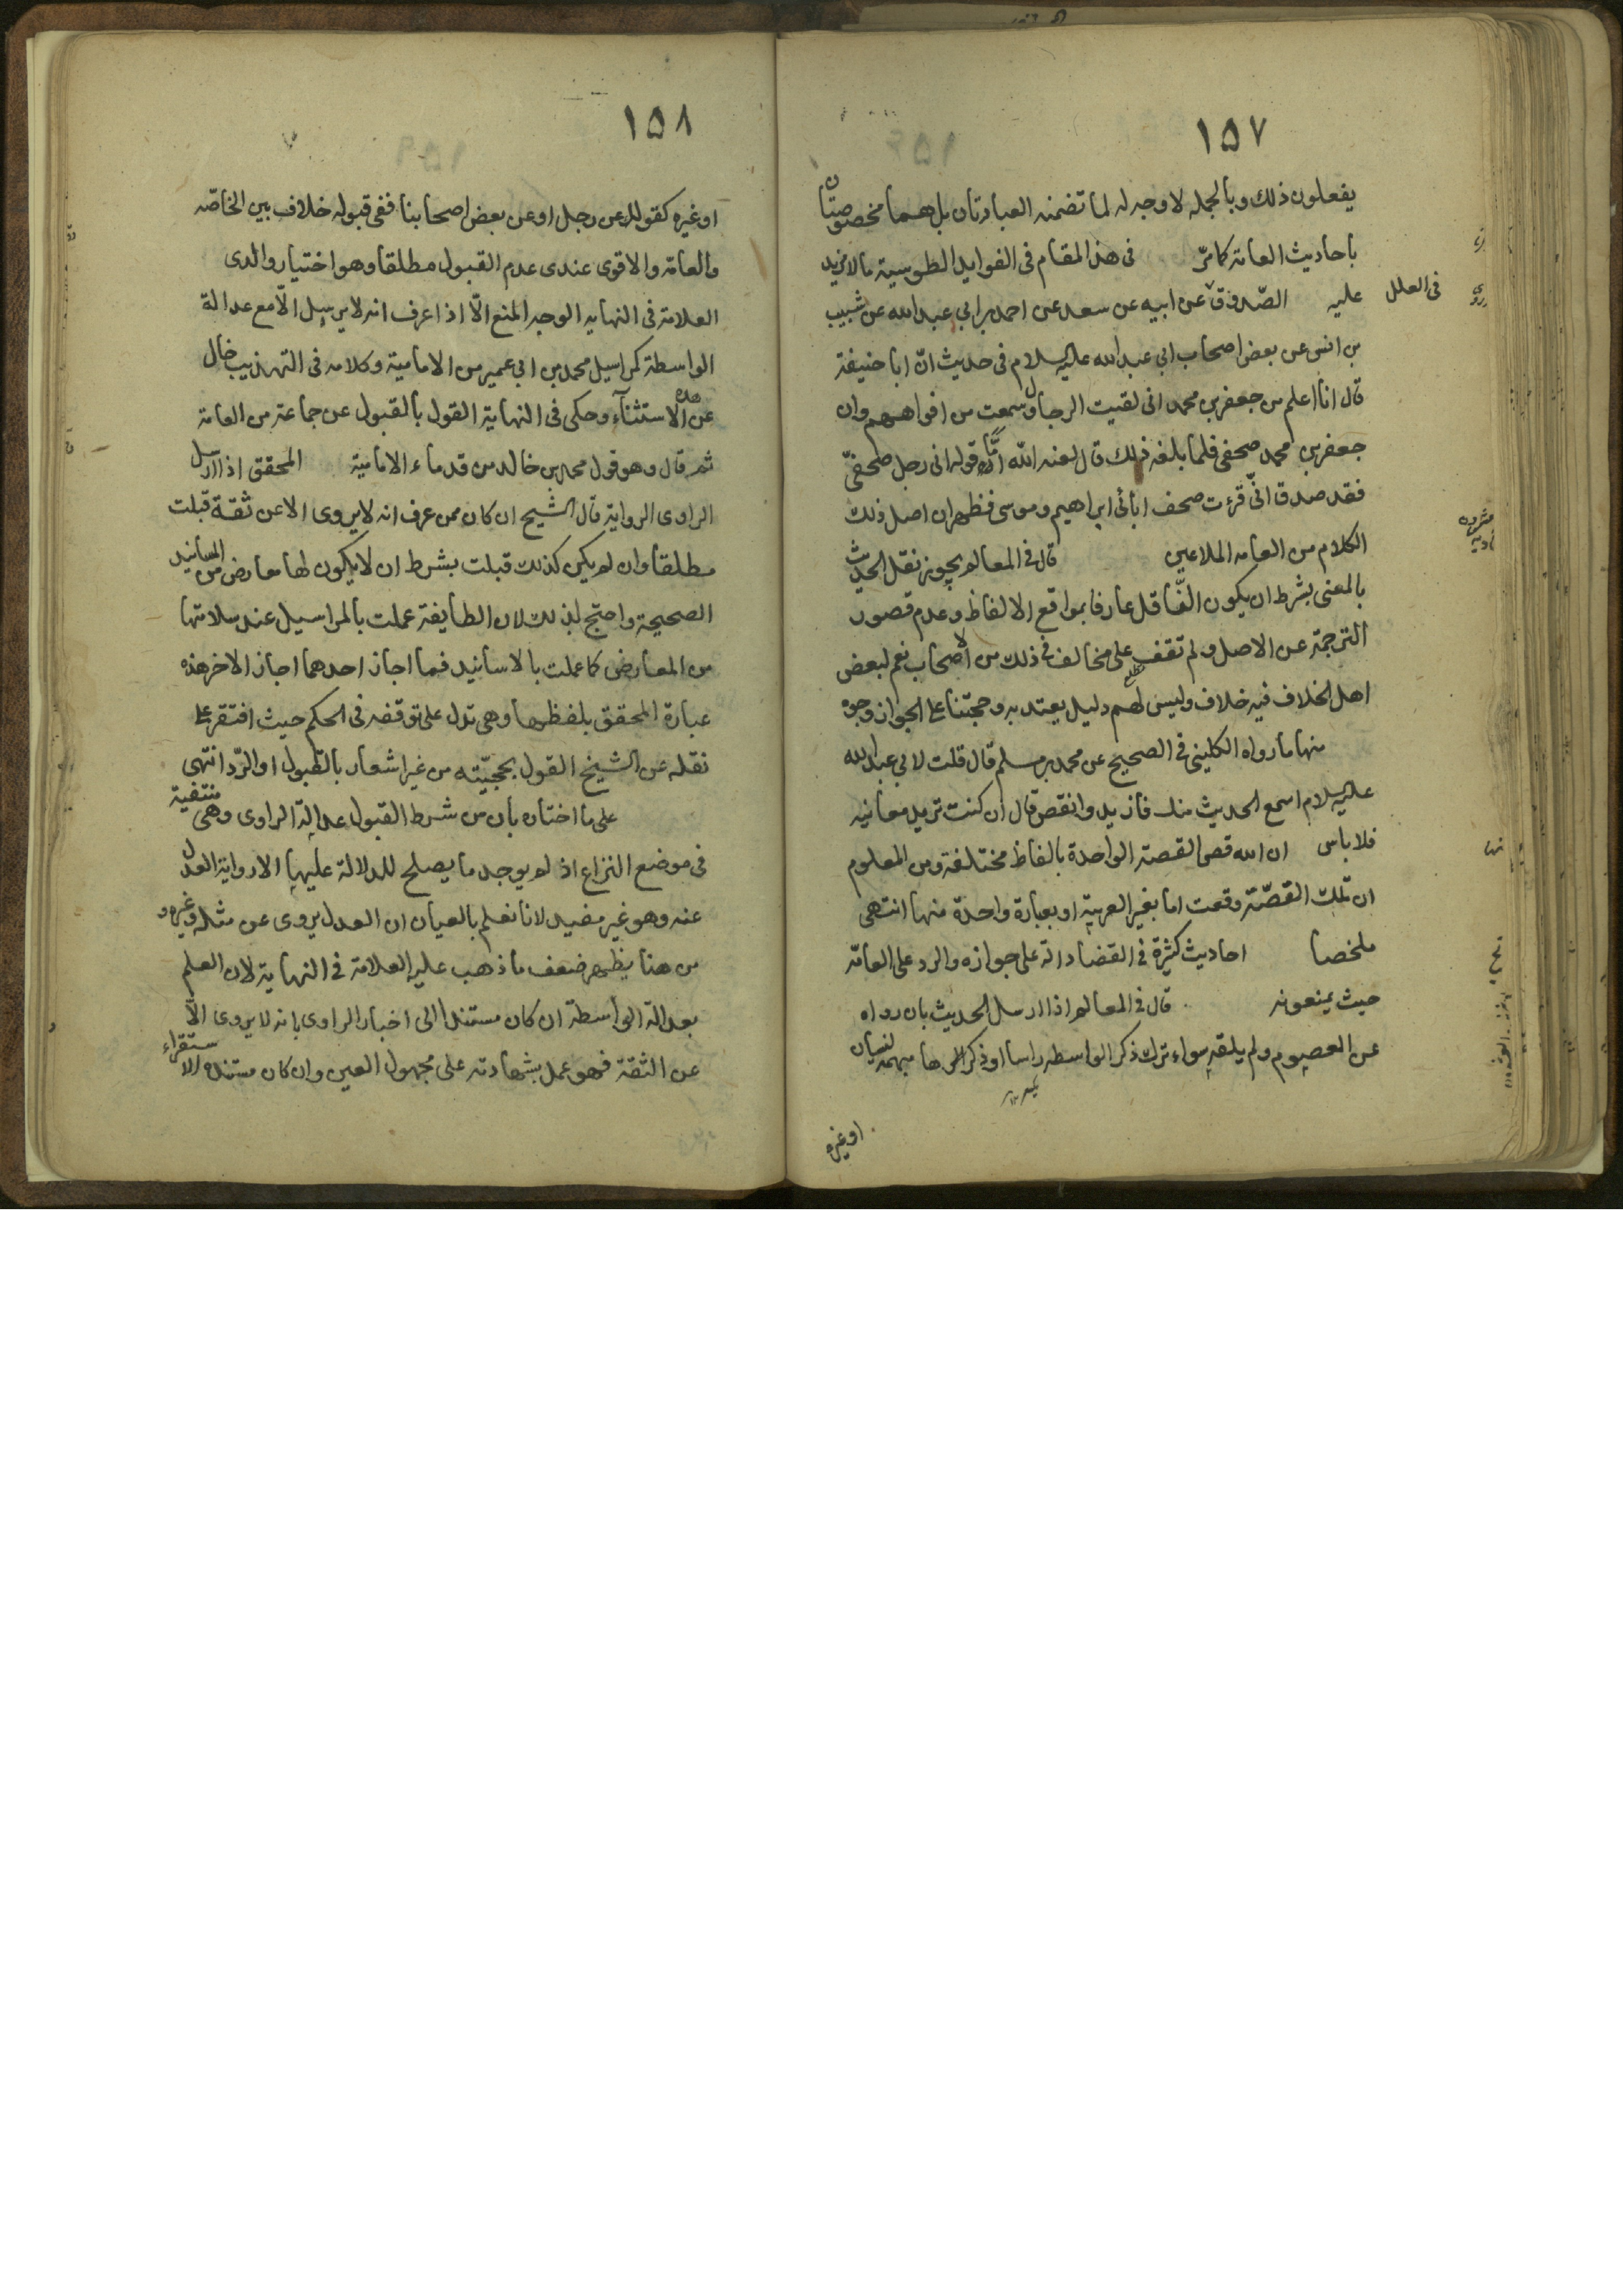 ١٥٧
يفعلون ذلك وبالجمله لا وجه له لما تضمنه العبارتان بل هما مخصوصتان
باحاديث العامة كما مرّ في هذا المقام في الفوايد الطوسية ما لا مزيد
عليه الصّدوق عن ابيه عن سعد عن احمد بن ابي عبد الله عن شبيب
في العلل
بن انس عن بعض اصحاب ابي عبد الله عليه السلام في حديث انّ ابا حنيفة
قال انا اعلم من جعفر بن محمد اني لقيت الرجال وسمعت من افواههم وان
جعفر بن محمد صحفي فلما بلغه ذلك قال لعنه الله امّا قوله اني رجل صحفيّ
فقد صدق انّي قرءت صحف ابائي ابراهيم وموسى فظهر ان اصل ذلك
الكلام من العامه الملاعين قال في المعالم يجوز نقل الحديث
بالمعنى بشرط ان يكون النّاقل عارفا بمواقع الالفاظ وعدم قصور
الترجمة عن الاصل ولم نقف على مخالف في ذلك من الاصحاب نعم لبعض
اهل الخلاف فيه خلاف وليس لهم دليل يعتد به وحجتنا على الجواز وجوه
منها ما رواه الكليني في الصحيح عن محمد بن مسلم قال قلت لابي عبد الله
عليه السلام اسمع الحديث منك فازيد وانقص قال ان كنت تريد معانيه
فلا باس ان الله قص القصة الواحدة بالفاظ مختلفة ومن المعلوم
ان تلك القصّة وقعت اما بغير العربية او بعبارة واحدة منها انتهى
ملخصا احاديث كثيرة في القضا دالة على جوازه والرد على العامّه
حيث يمنعونه قال في المعالم اذا ارسل الحديث بان رواه
عن المعصوم ولم يلقه سواء ترك ذكر الواسطه راسا او ذكرها مبهمه لنسيان
او غيره
١٥٨
او غيره كقوله عن رجل او عن بعض اصحابنا ففي قبوله خلاف بين الخاصّه
والعامّة والاقوى عندي عدم القبول مطلقا وهو اختيار والدي
العلامة في النهايه الوجه المنع الّا اذا عرف انه لا يرسل الّا مع عدالة
الواسطة كمراسيل محمد بن ابي عمير من الامامية وكلامه في التهذيب خال
عن هذه الاستثناء وحكى في النهاية القول بالقبول عن جماعة من العامة
ثم قال وهو قول محمد بن خالد من قدماء الامامية المحقق اذا ارسل
الراوي الرواية قال الشيخ ان كان ممن عرف انه لا يروي الا عن ثقة قبلت
مطلقا وان لم يكن كذلك قبلت بشرط ان لا يكون لها معارض من المسانيد
الصحيحة واحتج لذلك لان الطايفة عملت بالمراسيل عند سلامتها
من المعارض كما عملت بالاسانيد فما اجاز احدهما اجاز الاخر هذه
عبارة المحقق بلفظها وهي تدل على توقفه في الحكم حيث افتقر على
نقله عن الشيخ القول بحجيّته من غير اشعار بالقبول او الرّد انتهى
على ما اختاره بان من شرط القبول عدالة الراوي وهي منتفية
في موضع النزاع اذ لم يوجد ما يصلح للدلالة عليها الا رواية العدل
عنه وهو غير مفيد لانا نعلم بالعيان ان العدل يروي عن مثله وغيره و
من هنا يظهر ضعف ما ذهب عليه العلامة في النهاية لان العلم
بعدالة الواسطة ان كان مستندا الى اخبار الراوي بانه لا يروي الّا
عن الثقة فهو عمل بشهادته على مجهول العين وان كان مستنده الاستقراء